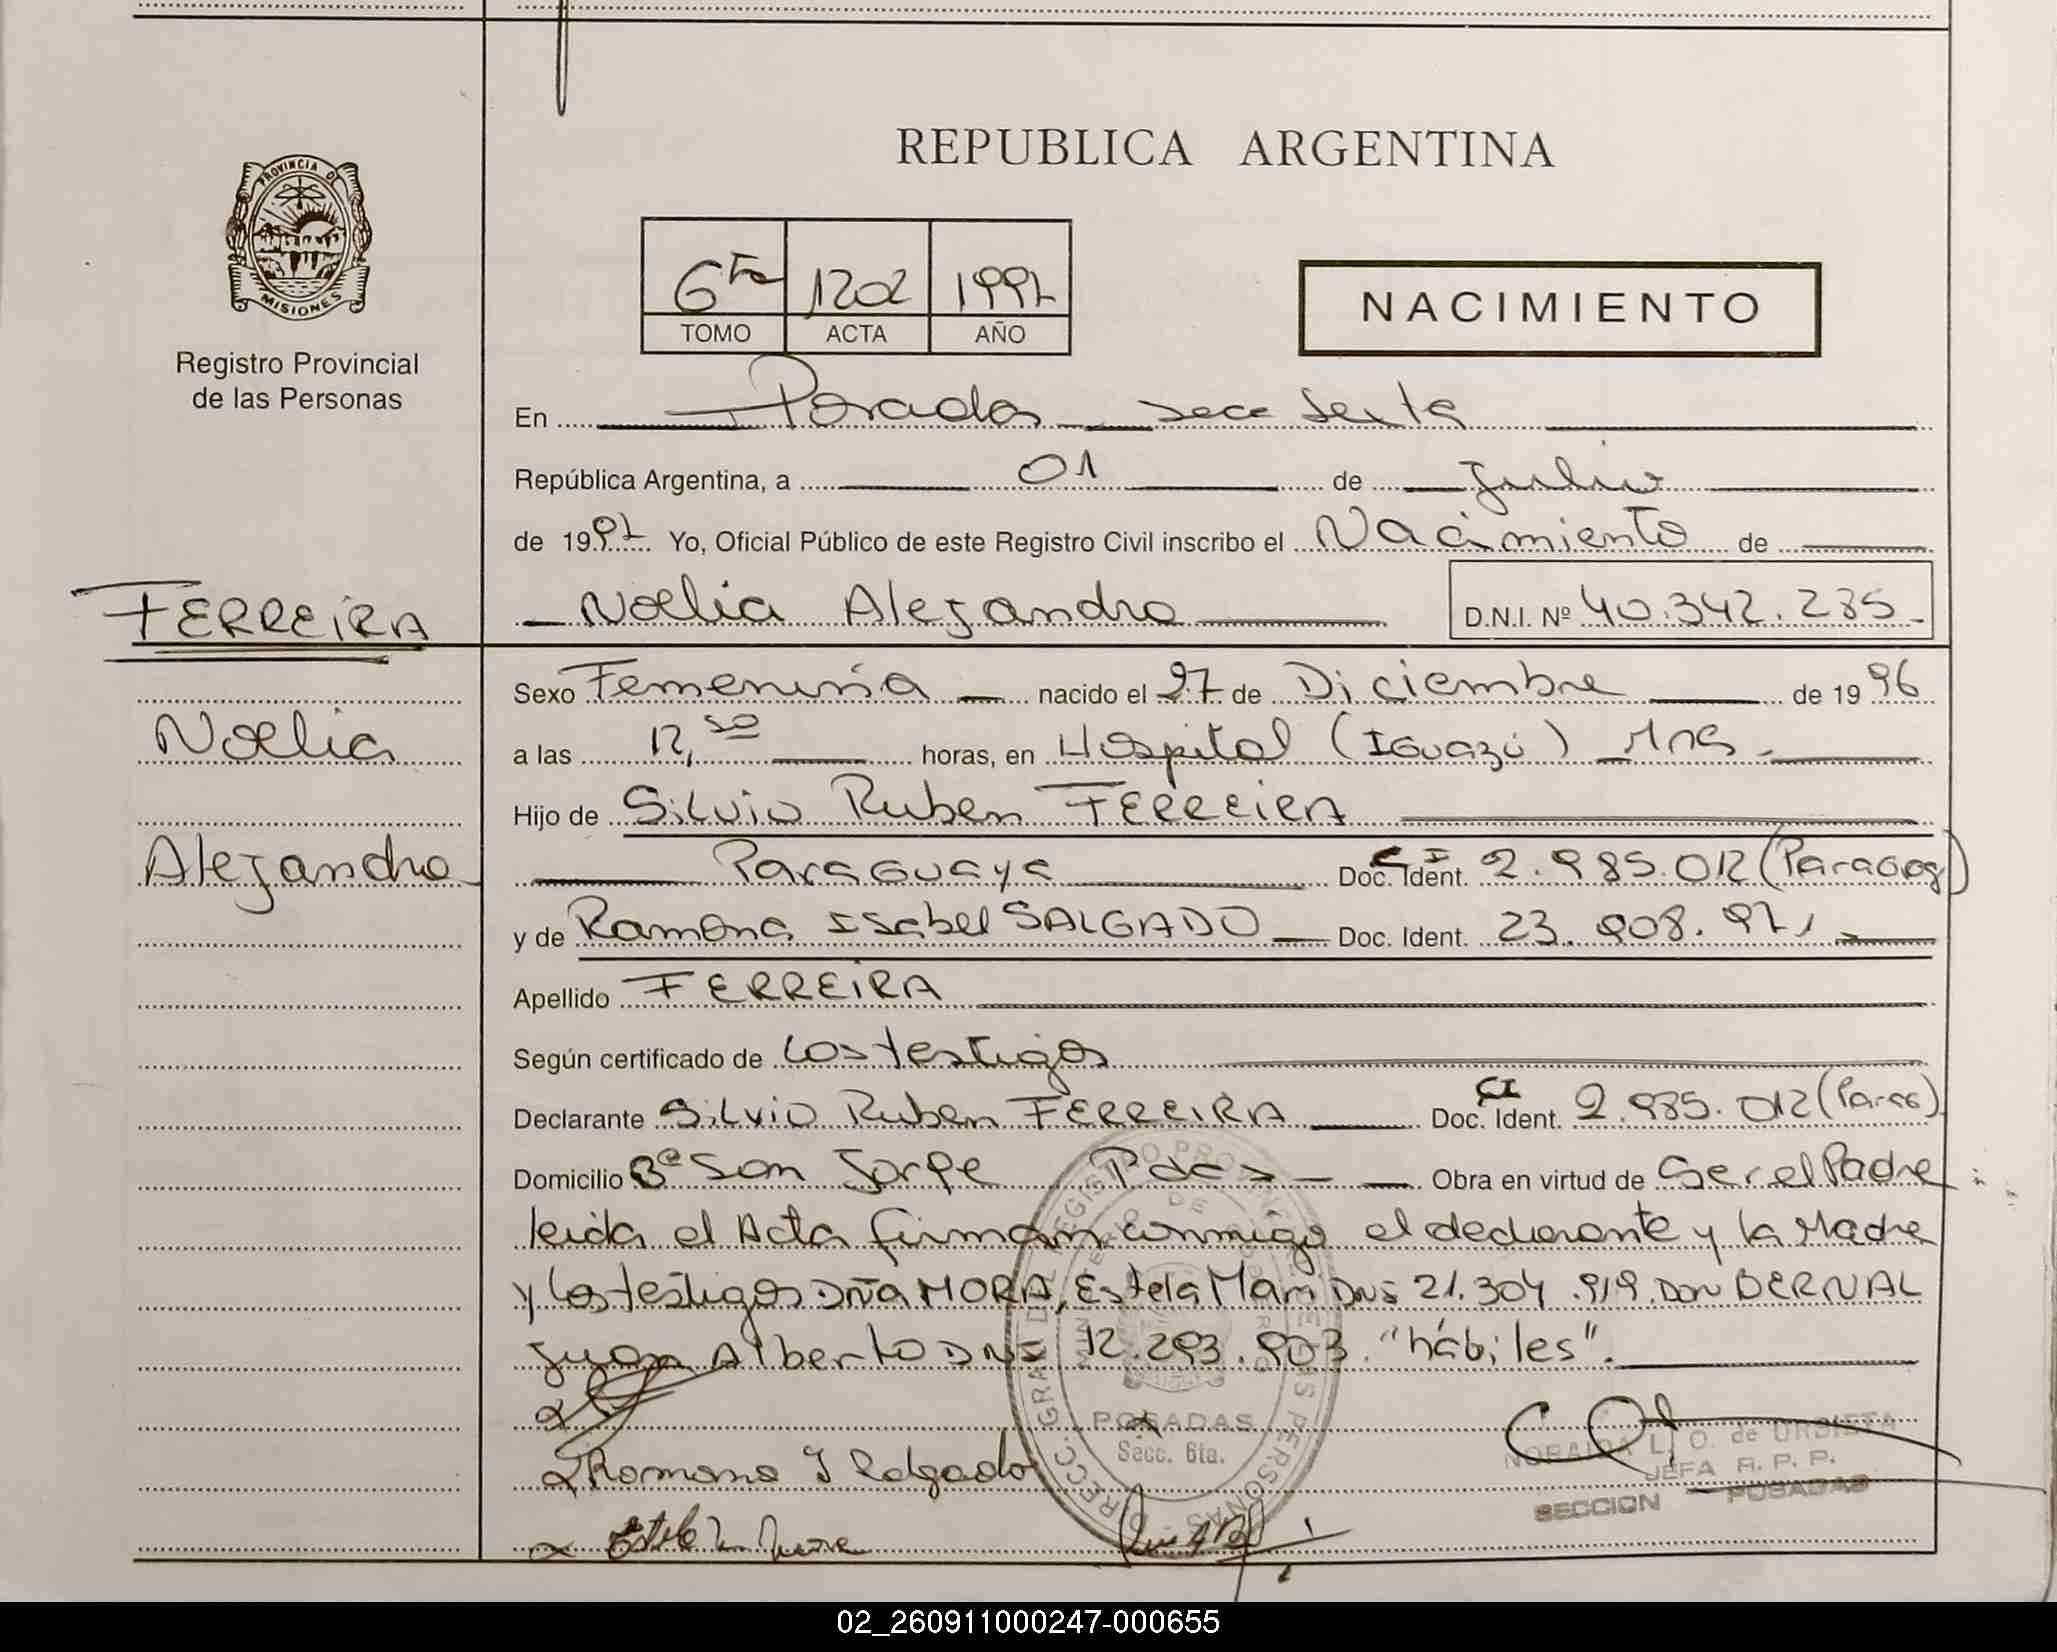 REPUBLICA ARGENTINA
PROVINCIA DE
MISIONES
Registro Provincial
de las Personas
6ta 1202 1997
TOMO ACTA AÑO
NACIMIENTO
En Posadas secc Sexta
República Argentina, a 01 de Julio
de 1997 Yo, Oficial Público de este Registro Civil inscribo el Nacimiento de
Noelia Alejandra D.N.I. Nº 40.342.235
FERREIRA
Noelia
Alejandra
Sexo Femenina nacido el 27 de Diciembre de 1996
a las 12,50 horas, en Hospital (Iguazú) Mnes
Hijo de Silvio Ruben FERREIRA
Paraguaya Doc. Ident. CI 2.985.012 (Paraguay)
y de Ramona Isabel SALGADO Doc. Ident. 23.908.971
Apellido FERREIRA
Según certificado de Los testigos
Declarante Silvio Ruben FERREIRA Doc. Ident. CI 2.985.012 (Parag)
Domicilio Bº San Jorge Pdas Obra en virtud de Ser el Padre
leida el Acta firman conmigo el declarante y la Madre
y los testigos Dña MORA, Estela Mari DNI 21.304.919. Don BERNAL
Juan Alberto DNI 12.293.903. "hábiles".
Ramona I Salgado
POSADAS
Secc. 6ta.
L. O. de URBIETA
JEFA R. P. P.
SECCION POSADAS
02_260911000247-000655